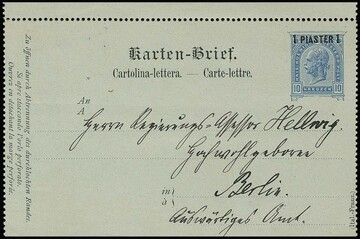 1 PIASTER 1
10 KREUZER 10
Karten-Brief.
Cartolina-lettera. — Carte-lettre.
An
A
Herrn Regierungs-Assessor Hellwig
Hochwohlgeboren
in
à
Berlin.
Auswärtiges Amt.
Zu öffnen durch Abtrennung der durchlochten Ränder.
Si apre staccando l'orlo perforato.
Ouvrir en détachant la marge perforée.